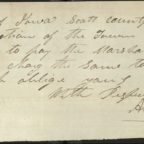 of Iowa Scott county
ction of the Town
to pay the Marshal
charg the same to
oblige yours
With Respec
A